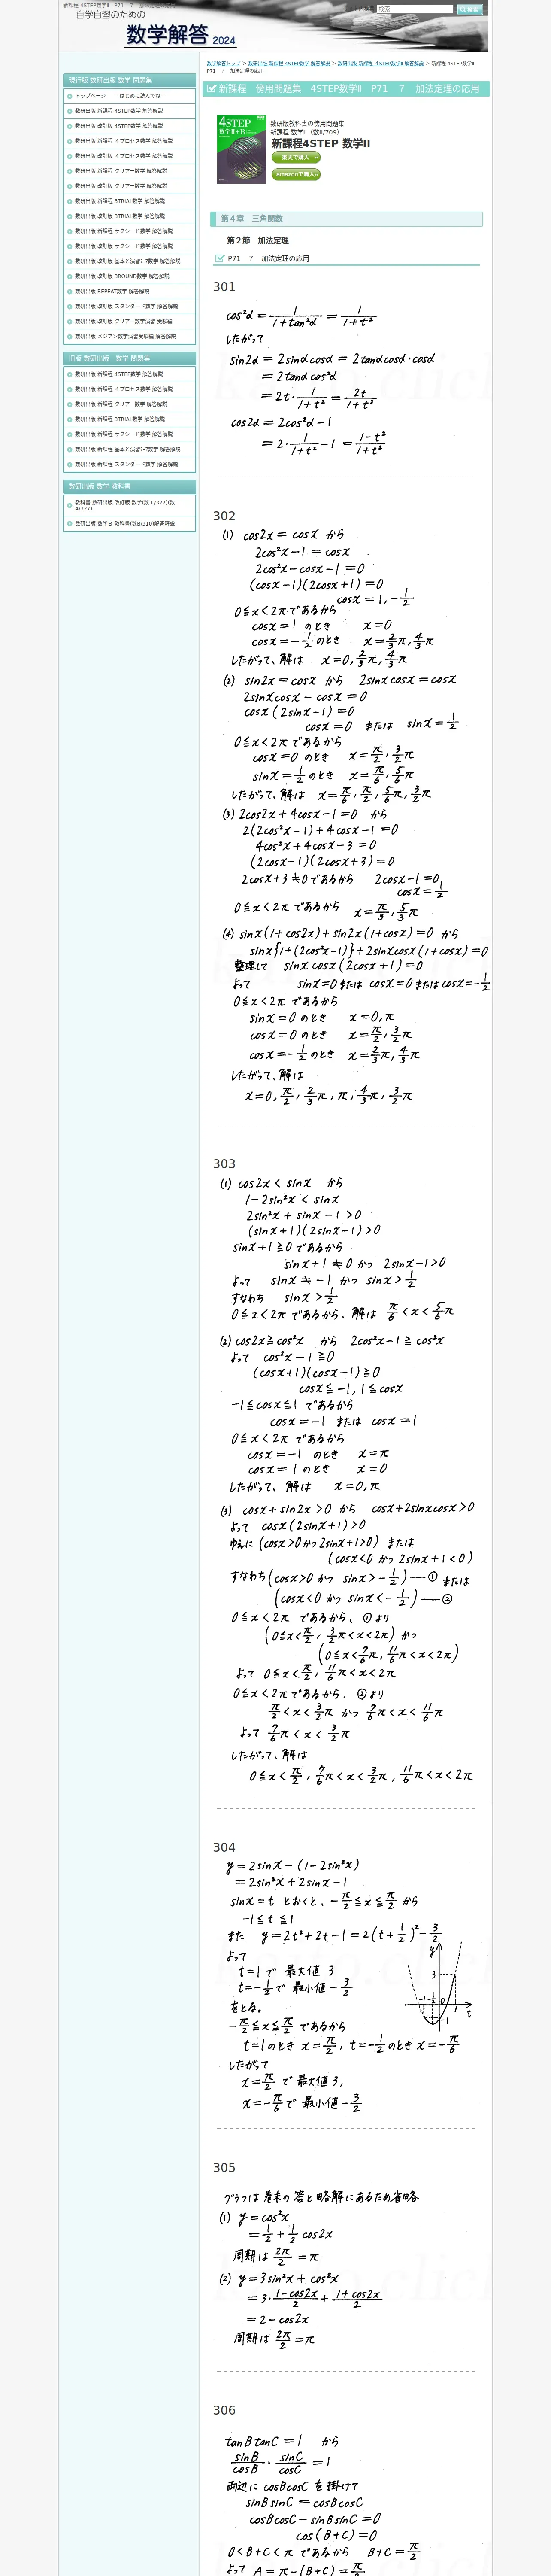 新課程 4STEP数学Ⅱ P71 7 加法定理の応用
自学自習のための
数学解答 2024
検索
検索
数学解答トップ > 数研出版 新課程 4STEP数学 解答解説 > 数研出版 新課程 4STEP数学Ⅱ 解答解説 > 新課程 4STEP数学Ⅱ
P71 7 加法定理の応用
現行版 数研出版 数学 問題集
トップページ － はじめに読んでね －
数研出版 新課程 4STEP数学 解答解説
数研出版 改訂版 4STEP数学 解答解説
数研出版 新課程 4プロセス数学 解答解説
数研出版 改訂版 4プロセス数学 解答解説
数研出版 新課程 クリアー数学 解答解説
数研出版 改訂版 クリアー数学 解答解説
数研出版 新課程 3TRIAL数学 解答解説
数研出版 改訂版 3TRIAL数学 解答解説
数研出版 新課程 サクシード数学 解答解説
数研出版 改訂版 サクシード数学 解答解説
数研出版 改訂版 基本と演習ﾃｰﾏ数学 解答解説
数研出版 改訂版 3ROUND数学 解答解説
数研出版 REPEAT数学 解答解説
数研出版 改訂版 スタンダード数学 解答解説
数研出版 改訂版 クリアー数学演習 受験編
数研出版 メジアン数学演習受験編 解答解説
旧版 数研出版 数学 問題集
数研出版 新課程 4STEP数学 解答解説
数研出版 新課程 4プロセス数学 解答解説
数研出版 新課程 クリアー数学 解答解説
数研出版 新課程 3TRIAL数学 解答解説
数研出版 新課程 サクシード数学 解答解説
数研出版 新課程 基本と演習ﾃｰﾏ数学 解答解説
数研出版 新課程 スタンダード数学 解答解説
数研出版 数学 教科書
教科書 数研出版 改訂版 数学(数Ⅰ/327)(数A/327)
数研出版 数学B 教科書(数B/310)解答解説
新課程 傍用問題集 4STEP数学Ⅱ P71 7 加法定理の応用
4STEP
数学Ⅱ+B
数研版教科書の傍用問題集
新課程 数学Ⅱ（数Ⅱ/709）
新課程4STEP 数学II
楽天で購入
amazonで購入
第４章 三角関数
第２節 加法定理
P71 7 加法定理の応用
301
cos²α = 1/(1+tan²α) = 1/(1+t²)
したがって
sin2α = 2sinα cosα = 2tanα cosα・cosα
= 2tanα cos²α
= 2t・1/(1+t²) = 2t/(1+t²)
cos2α = 2cos²α − 1
= 2・1/(1+t²) − 1 = (1−t²)/(1+t²)
302
(1) cos2x = cosx から
2cos²x − 1 = cosx
2cos²x − cosx − 1 = 0
(cosx − 1)(2cosx + 1) = 0
cosx = 1, −1/2
0≦x<2πであるから
cosx = 1 のとき x = 0
cosx = −1/2 のとき x = 2/3π, 4/3π
したがって、解は x = 0, 2/3π, 4/3π
(2) sin2x = cosx から 2sinxcosx = cosx
2sinxcosx − cosx = 0
cosx(2sinx−1) = 0
cosx = 0 または sinx = 1/2
0≦x<2π であるから
cosx = 0 のとき x = π/2, 3/2π
sinx = 1/2 のとき x = π/6, 5/6π
したがって、解は x = π/6, π/2, 5/6π, 3/2π
(3) 2cos2x + 4cosx − 1 = 0 から
2(2cos²x − 1) + 4cosx − 1 = 0
4cos²x + 4cosx − 3 = 0
(2cosx−1)(2cosx+3) = 0
2cosx+3≠0であるから 2cosx−1=0
cosx = 1/2
0≦x<2πであるから x = π/3, 5/3π
(4) sinx(1+cos2x)+sin2x(1+cosx)=0 から
sinx{1+(2cos²x−1)}+2sinxcosx(1+cosx)=0
整理して sinx cosx(2cosx+1)=0
よって sinx=0 または cosx=0 または cosx=−1/2
0≦x<2π であるから
sinx=0 のとき x=0, π
cosx=0 のとき x=π/2, 3/2π
cosx=−1/2 のとき x=2/3π, 4/3π
したがって、解は
x=0, π/2, 2/3π, π, 4/3π, 3/2π
303
(1) cos2x < sinx から
1−2sin²x < sinx
2sin²x + sinx − 1 > 0
(sinx+1)(2sinx−1) > 0
sinx+1≧0であるから
sinx+1≠0 かつ 2sinx−1>0
よって sinx≠−1 かつ sinx>1/2
すなわち sinx>1/2
0≦x<2πであるから、解は π/6<x<5/6π
(2) cos2x≧cos²x から 2cos²x−1≧cos²x
よって cos²x−1≧0
(cosx+1)(cosx−1)≧0
cosx≦−1, 1≦cosx
−1≦cosx≦1 であるから
cosx=−1 または cosx=1
0≦x<2π であるから
cosx=−1 のとき x=π
cosx=1 のとき x=0
したがって、解は x=0, π
(3) cosx+sin2x>0 から cosx+2sinxcosx>0
よって cosx(2sinx+1)>0
ゆえに (cosx>0かつ2sinx+1>0) または
(cosx<0 かつ 2sinx+1<0)
すなわち(cosx>0 かつ sinx>−1/2)―① または
(cosx<0 かつ sinx<−1/2)―②
0≦x<2π であるから、①より
(0≦x<π/2, 3/2π<x<2π) かつ
(0≦x<7/6π, 11/6π<x<2π)
よって 0≦x<π/2, 11/6π<x<2π
0≦x<2πであるから、②より
π/2<x<3/2π かつ 7/6π<x<11/6π
よって 7/6π<x<3/2π
したがって、解は
0≦x<π/2, 7/6π<x<3/2π, 11/6π<x<2π
304
y=2sinx−(1−2sin²x)
=2sin²x+2sinx−1
sinx=t とおくと、−π/2≦x≦π/2 から
−1≦t≦1
また y=2t²+2t−1=2(t+1/2)²−3/2
よって
t=1で 最大値 3
t=−1/2で 最小値−3/2
をとる。
−π/2≦x≦π/2 であるから
t=1のとき x=π/2, t=−1/2のとき x=−π/6
したがって
x=π/2 で 最大値3,
x=−π/6で 最小値−3/2
y
3
−1 −1/2 0 1 t
−1
305
グラフは巻末の答と略解にあるため省略
(1) y=cos²x
=1/2+1/2 cos2x
周期は 2π/2=π
(2) y=3sin²x+cos²x
=3・(1−cos2x)/2+(1+cos2x)/2
=2−cos2x
周期は 2π/2=π
306
tanB tanC=1 から
sinB/cosB・sinC/cosC=1
両辺に cosBcosC を掛けて
sinBsinC=cosBcosC
cosBcosC−sinBsinC=0
cos(B+C)=0
0<B+C<π であるから B+C=π/2
よって A=π−(B+C)=π/2